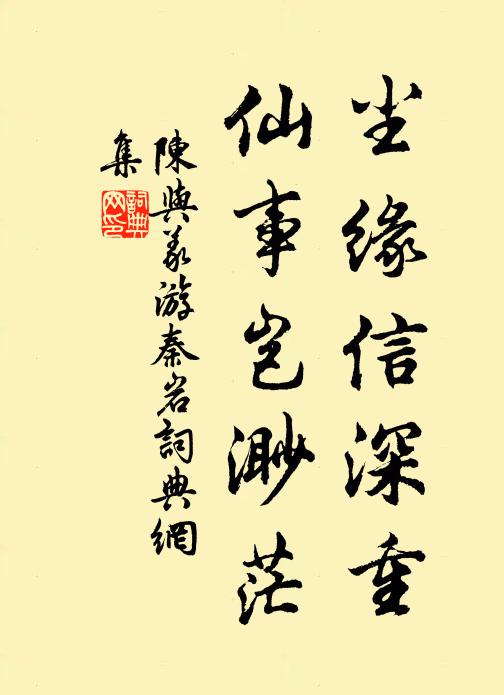 尘缘信深重
仙事岂渺茫
陳與義游秦岩詞典網
集
詞典网印